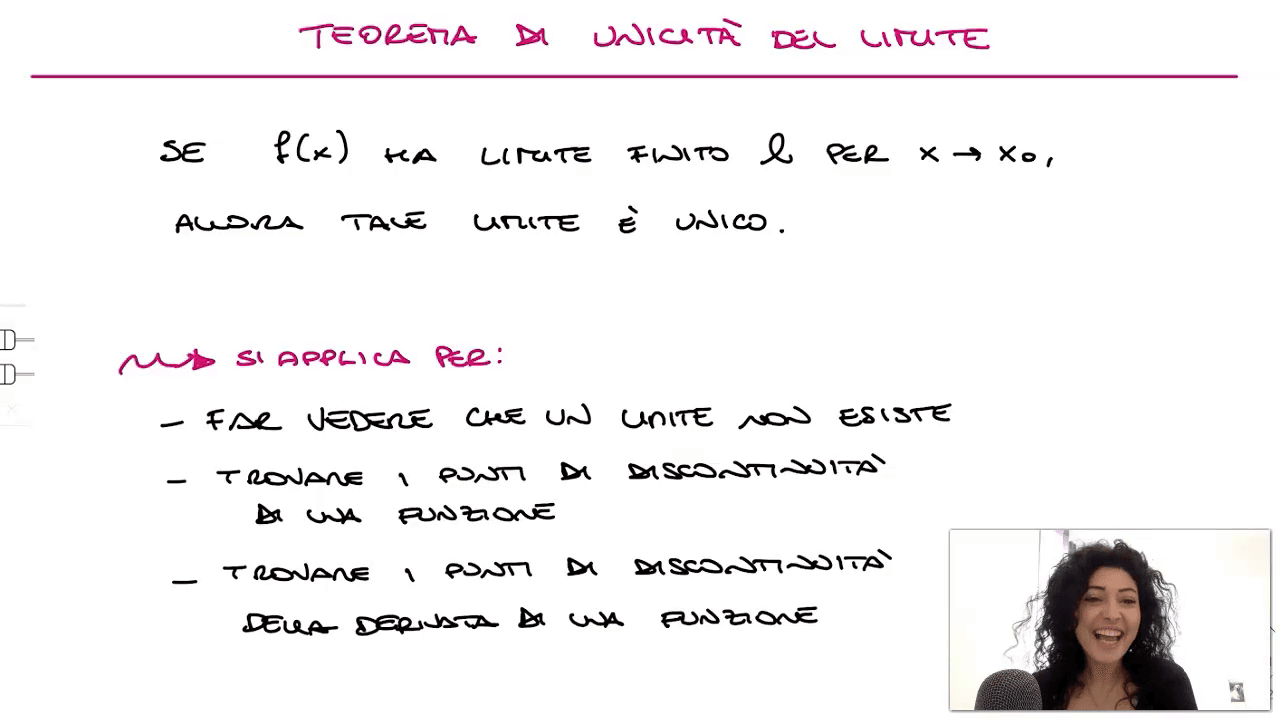 TEOREMA DI UNICITÀ DEL LIMITE
SE f(x) HA LIMITE FINITO l PER x → x₀,
ALLORA TALE LIMITE È UNICO.
SI APPLICA PER:
- FAR VEDERE CHE UN LIMITE NON ESISTE
- TROVARE I PUNTI DI DISCONTINUITÀ
DI UNA FUNZIONE
- TROVARE I PUNTI DI DISCONTINUITÀ
DELLA DERIVATA DI UNA FUNZIONE